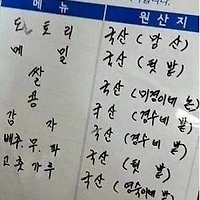 메뉴 원산지
도토리 국산 (앞 산)
메밀 국산 (텃 밭)
쌀 국산 (미경이네 논)
콩 국산 (경수네 밭)
감자 국산 (경수네 밭)
배추. 무. 파 국산 (텃 밭)
고춧가루 국산 (영숙이네 밭)